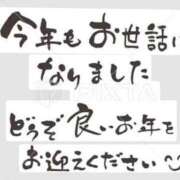 今年もお世話に
なりました
どうぞ良いお年を
お迎えください